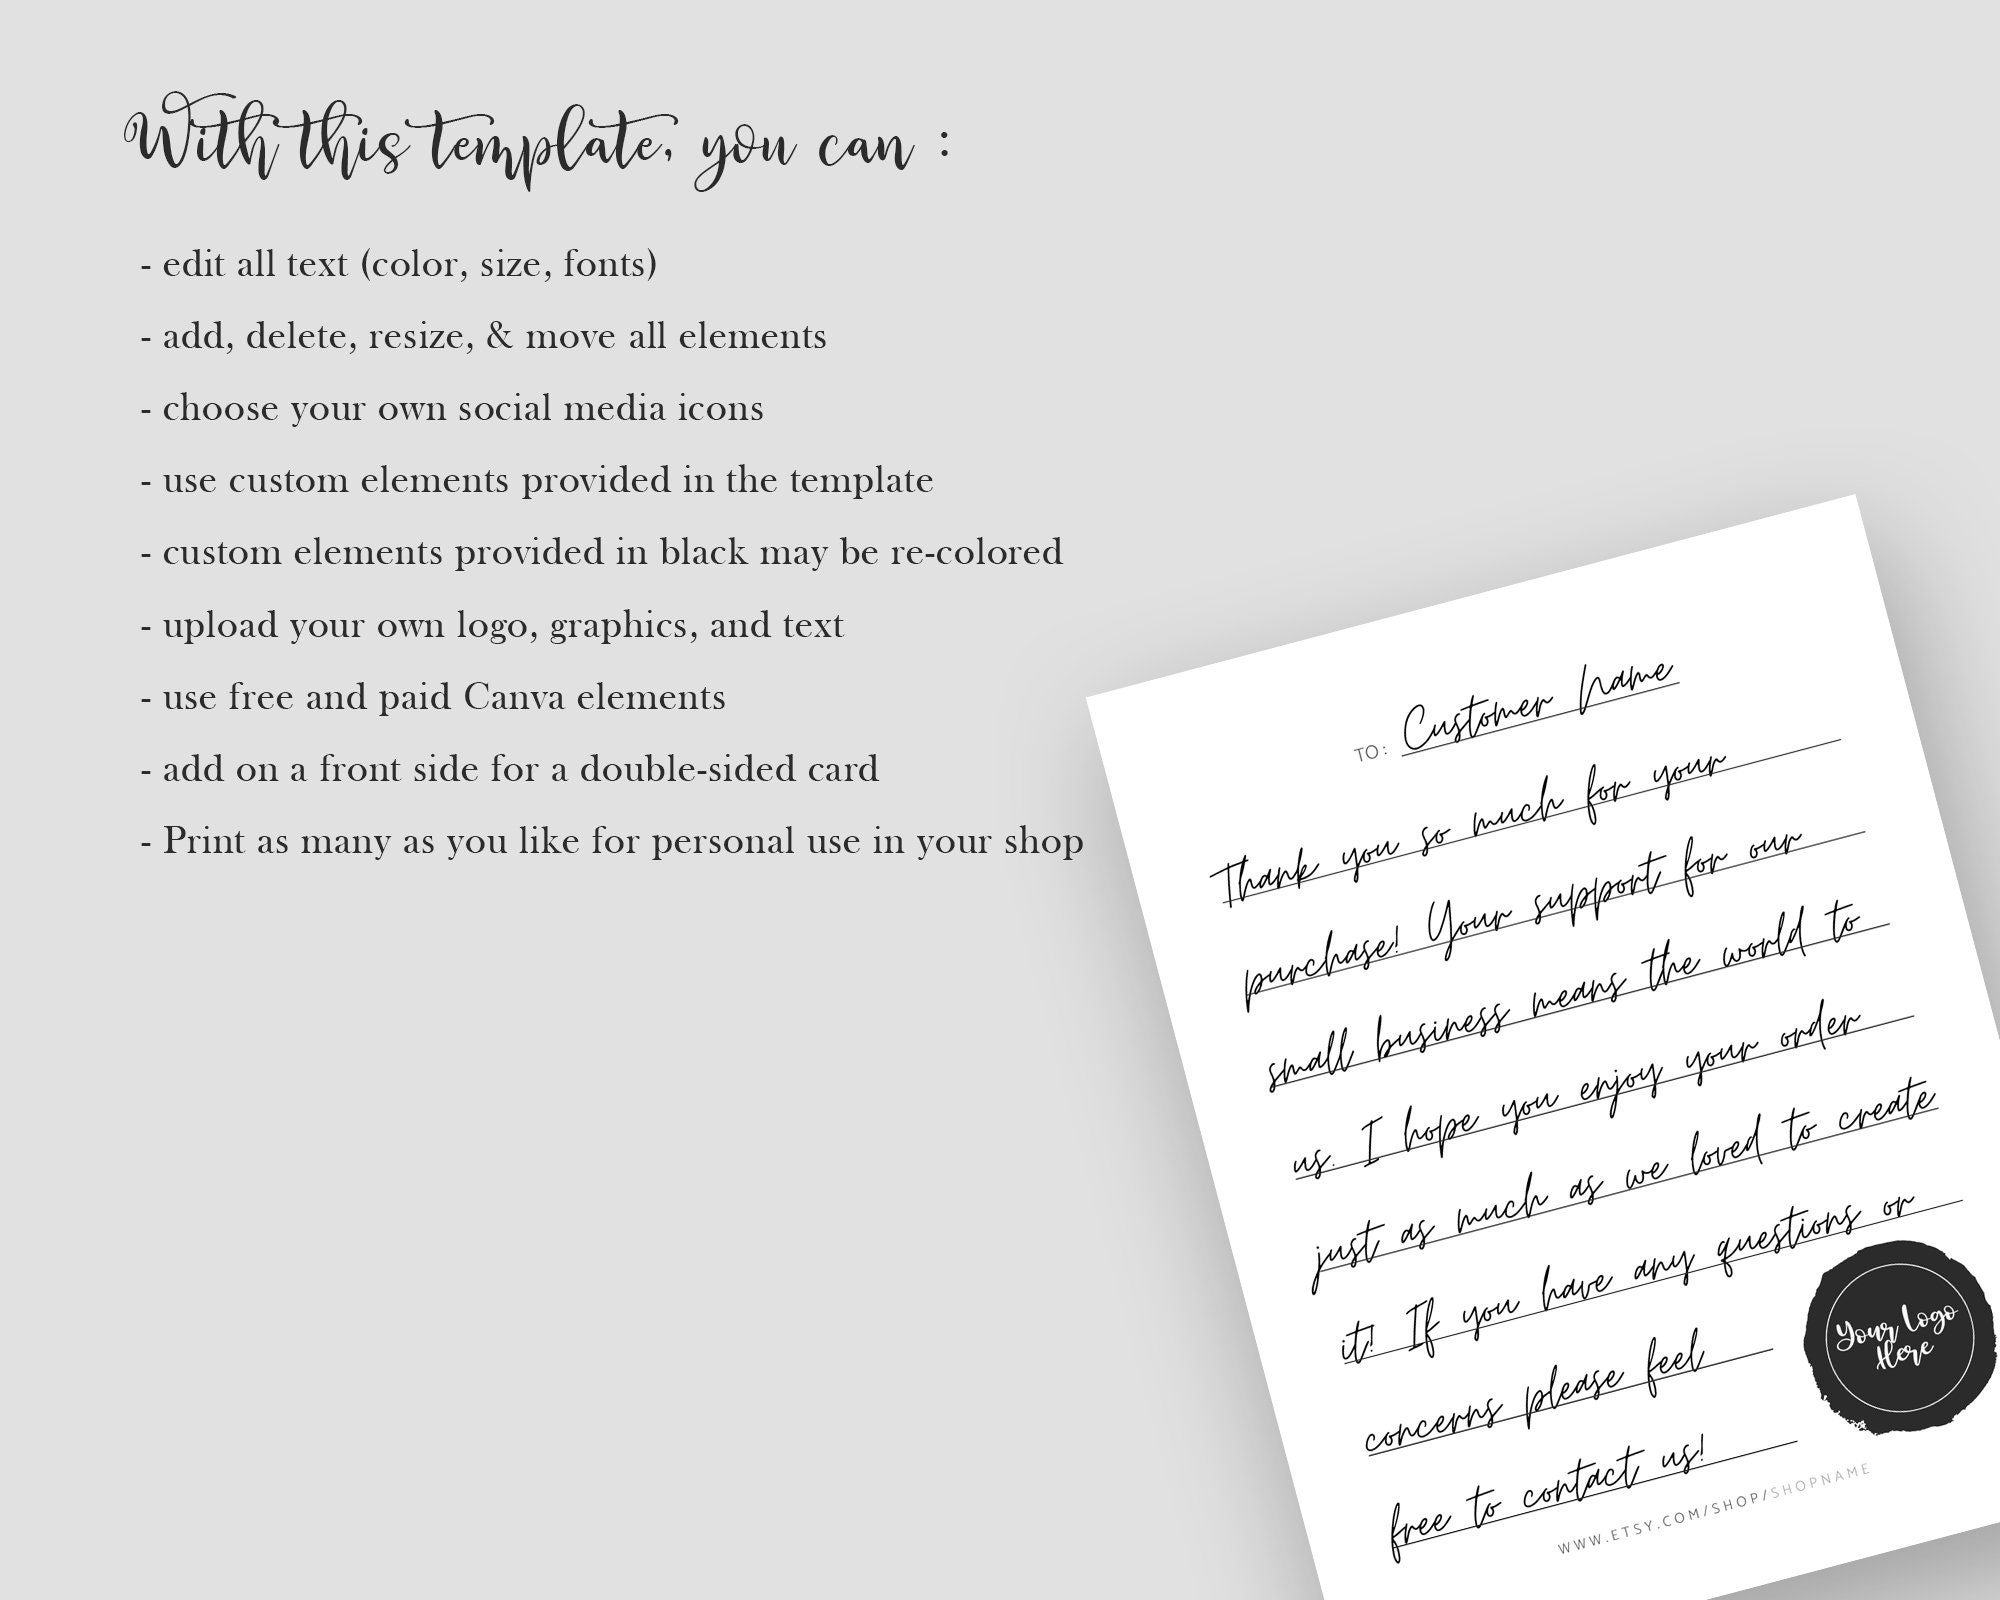 With this template, you can :
- edit all text (color, size, fonts)
- add, delete, resize, & move all elements
- choose your own social media icons
- use custom elements provided in the template
- custom elements provided in black may be re-colored
- upload your own logo, graphics, and text
- use free and paid Canva elements
- add on a front side for a double-sided card
- Print as many as you like for personal use in your shop
TO: Customer Name
Thank you so much for your
purchase! Your support for our
small business means the world to
us. I hope you enjoy your order
just as much as we loved to create
it! If you have any questions or
concerns please feel
free to contact us!
Your Logo
Here
WWW.ETSY.COM/SHOP/SHOPNAME